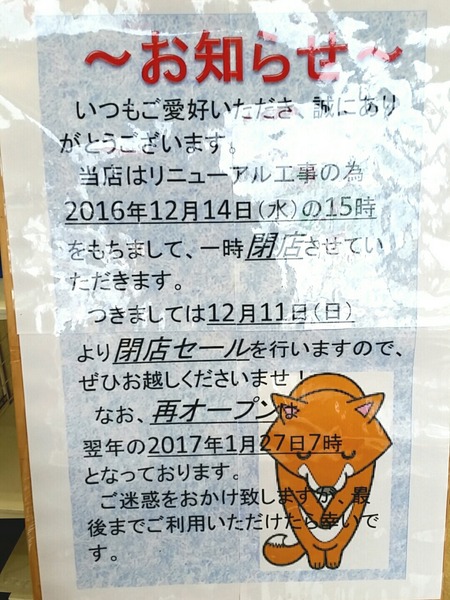 ～お知らせ～
いつもご愛好いただき、誠にあり
がとうございます。
当店はリニューアル工事の為
2016年12月14日(水)の15時
をもちまして、一時閉店させてい
ただきます。
つきましては12月11日(日)
より閉店セールを行いますので、
ぜひお越しくださいませ！
なお、再オープンは
翌年の2017年1月27日7時
となっております。
ご迷惑をおかけ致しますが、最
後までご利用いただけたら幸いで
す。